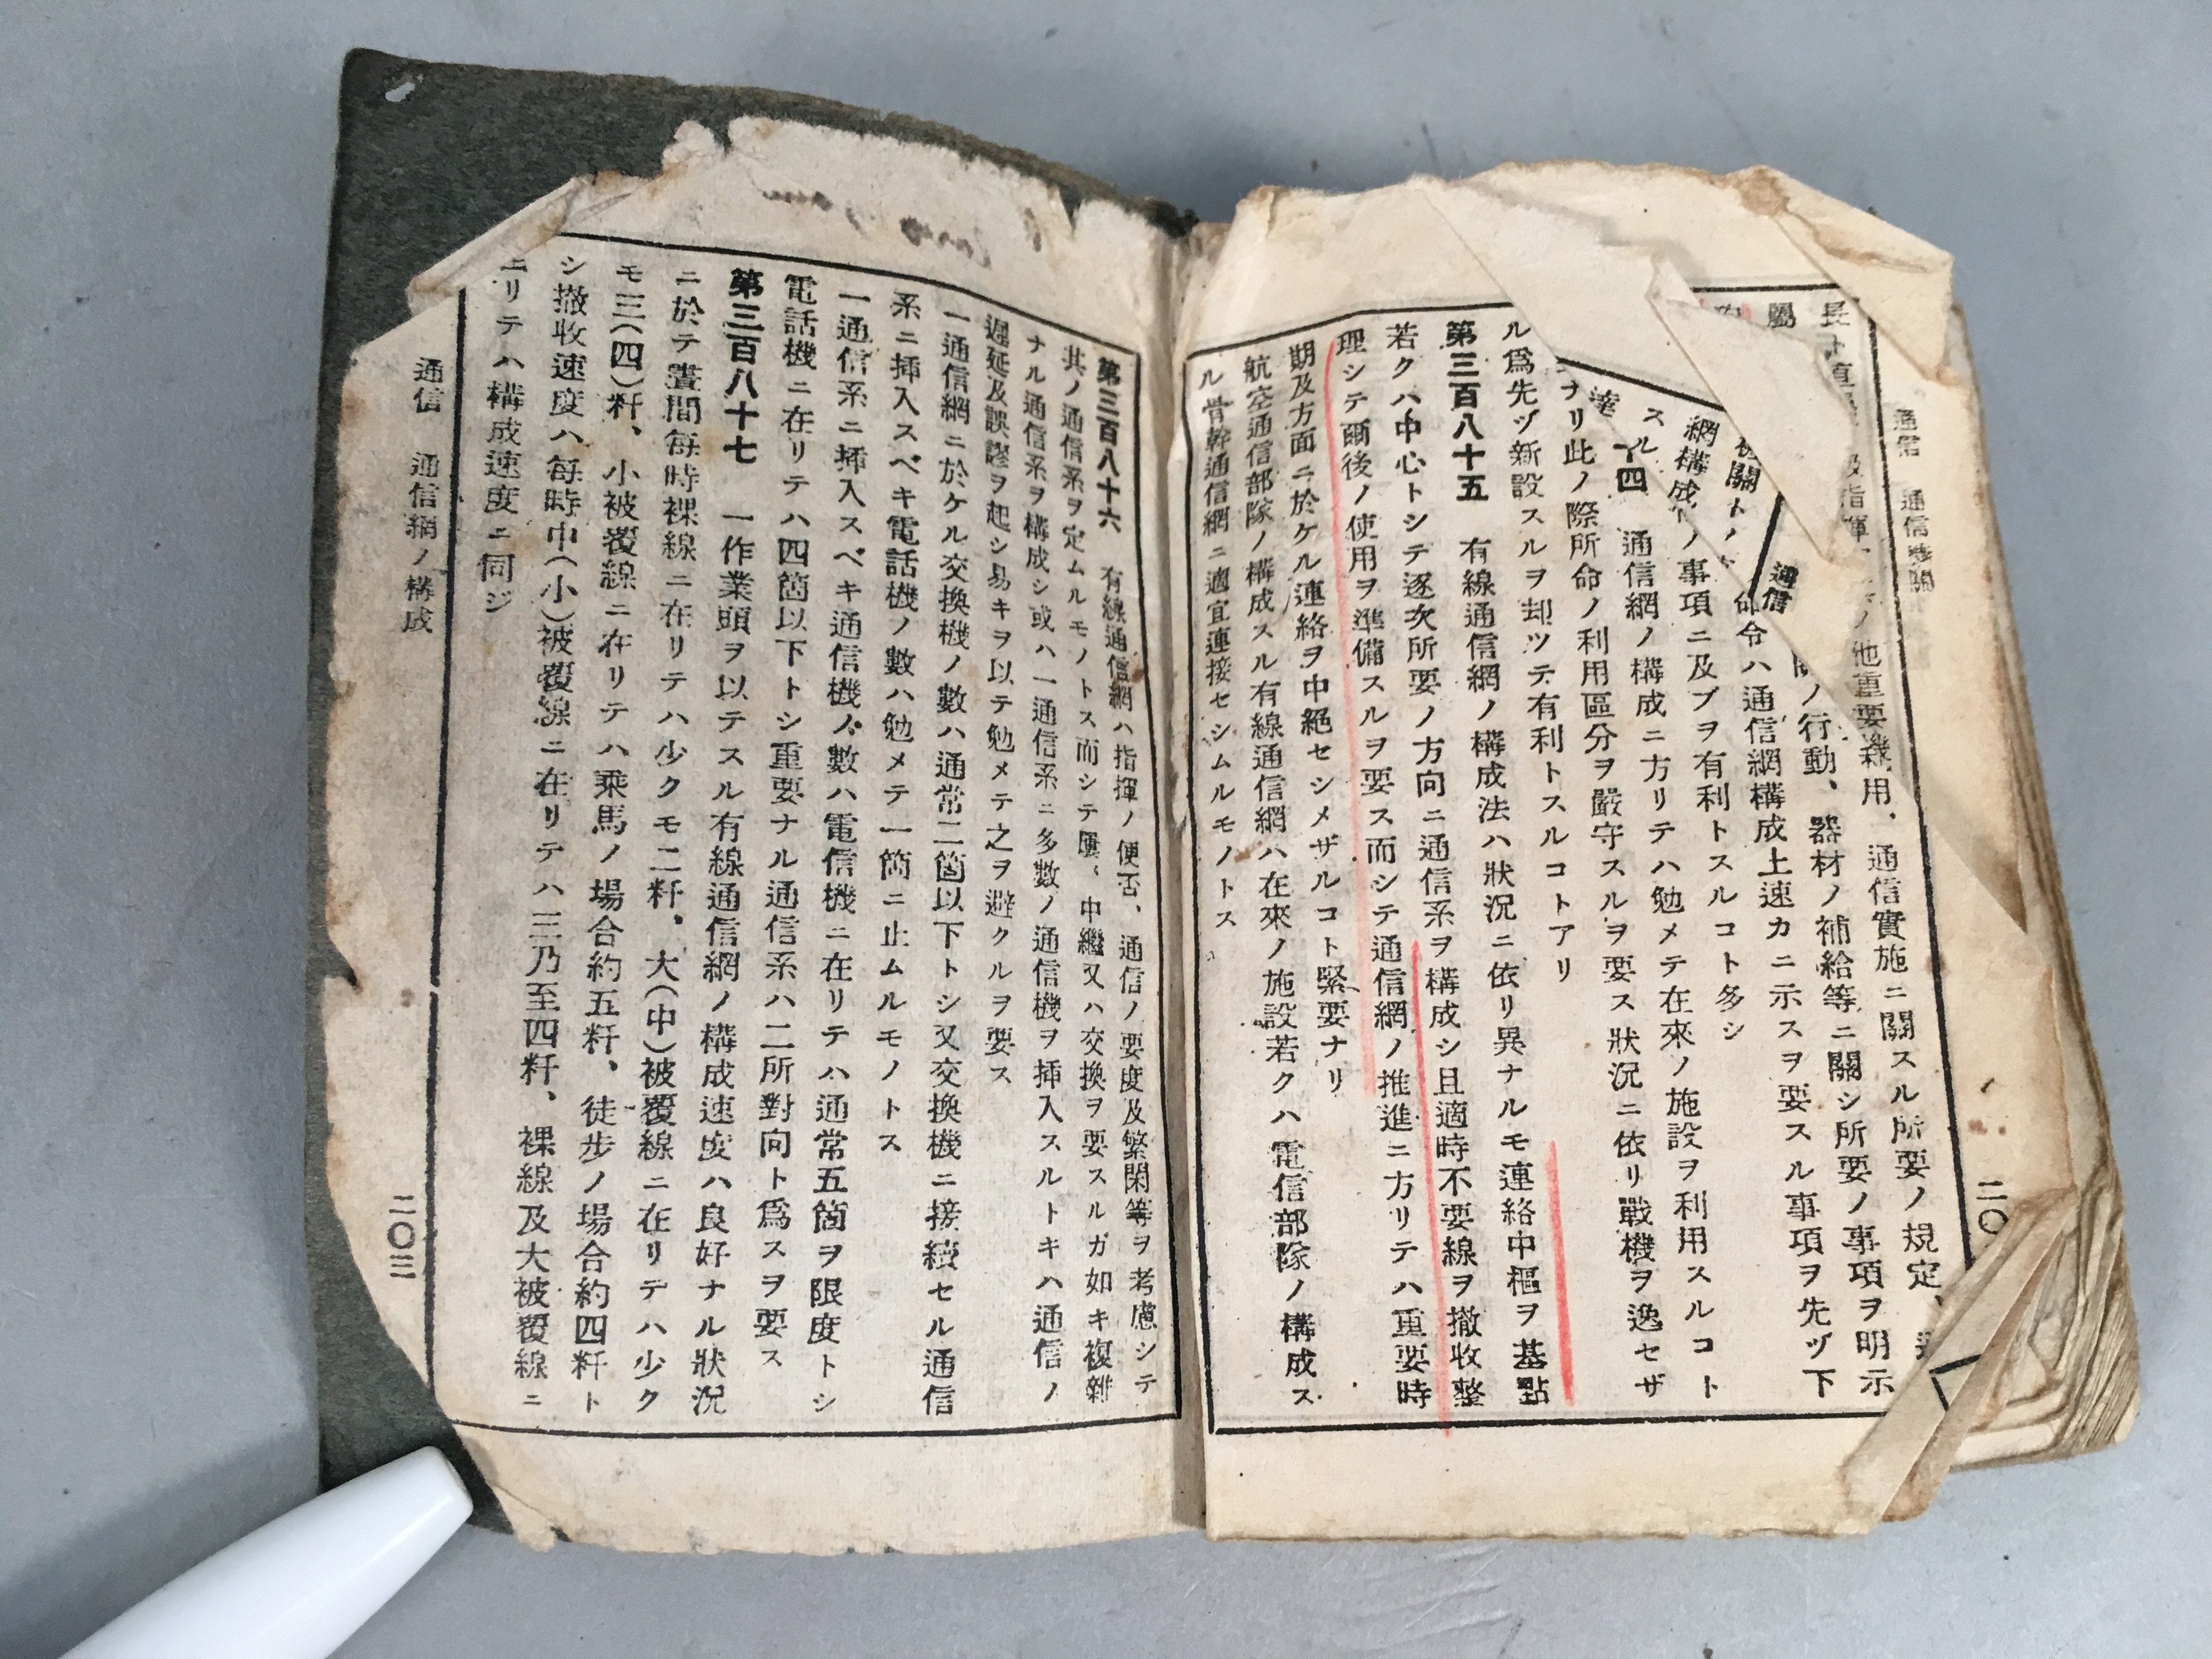 通信 通信機關
二〇
用、通信實施ニ關スル所要ノ規定、
ノ行動、器材ノ補給等ニ關シ所要ノ事項ヲ明示
令ハ通信網構成上速カニ示スヲ要スル事項ヲ先ヅ下
網構成ノ事項ニ及ブヲ有利トスルコト多シ
通信
十四 通信網ノ構成ニ方リテハ勉メテ在來ノ施設ヲ利用スルコト
ナリ此ノ際所命ノ利用區分ヲ嚴守スルヲ要ス狀況ニ依リ戰機ヲ逸セザ
ル爲先ヅ新設スルヲ却ツテ有利トスルコトアリ
第三百八十五 有線通信網ノ構成法ハ狀況ニ依リ異ナルモ連絡中樞ヲ基點
若クハ中心トシテ逐次所要ノ方向ニ通信系ヲ構成シ且適時不要線ヲ撤收整
理シテ爾後ノ使用ヲ準備スルヲ要ス而シテ通信網ノ推進ニ方リテハ重要時
期及方面ニ於ケル連絡ヲ中絕セシメザルコト緊要ナリ
航空通信部隊ノ構成スル有線通信網ハ在來ノ施設若クハ電信部隊ノ構成ス
ル骨幹通信網ニ適宜連接セシムルモノトス
第三百八十六 有線通信網ハ指揮ノ便否、通信ノ要度及繁閑等ヲ考慮シテ
其ノ通信系ヲ定ムルモノトス而シテ屢〻中繼又ハ交換ヲ要スルガ如キ複雜
ナル通信系ヲ構成シ或ハ一通信系ニ多數ノ通信機ヲ挿入スルトキハ通信ノ
遲延及誤謬ヲ起シ易キヲ以テ勉メテ之ヲ避クルヲ要ス
一通信網ニ於ケル交換機ノ數ハ通常二箇以下トシ又交換機ニ接續セル通信
系ニ挿入スベキ電話機ノ數ハ勉メテ一箇ニ止ムルモノトス
一通信系ニ挿入スベキ通信機ノ數ハ電信機ニ在リテハ通常五箇ヲ限度トシ
電話機ニ在リテハ四箇以下トシ重要ナル通信系ハ二所對向ト爲スヲ要ス
第三百八十七 一作業頭ヲ以テスル有線通信網ノ構成速度ハ良好ナル狀況
ニ於テ晝間每時裸線ニ在リテハ少クモ二粁、大(中)被覆線ニ在リテハ少ク
モ三(四)粁、小被覆線ニ在リテハ乘馬ノ場合約五粁、徒步ノ場合約四粁ト
シ撤收速度ハ每時中(小)被覆線ニ在リテハ三乃至四粁、裸線及大被覆線ニ
在リテハ構成速度ニ同ジ
通信 通信網ノ構成
二〇三